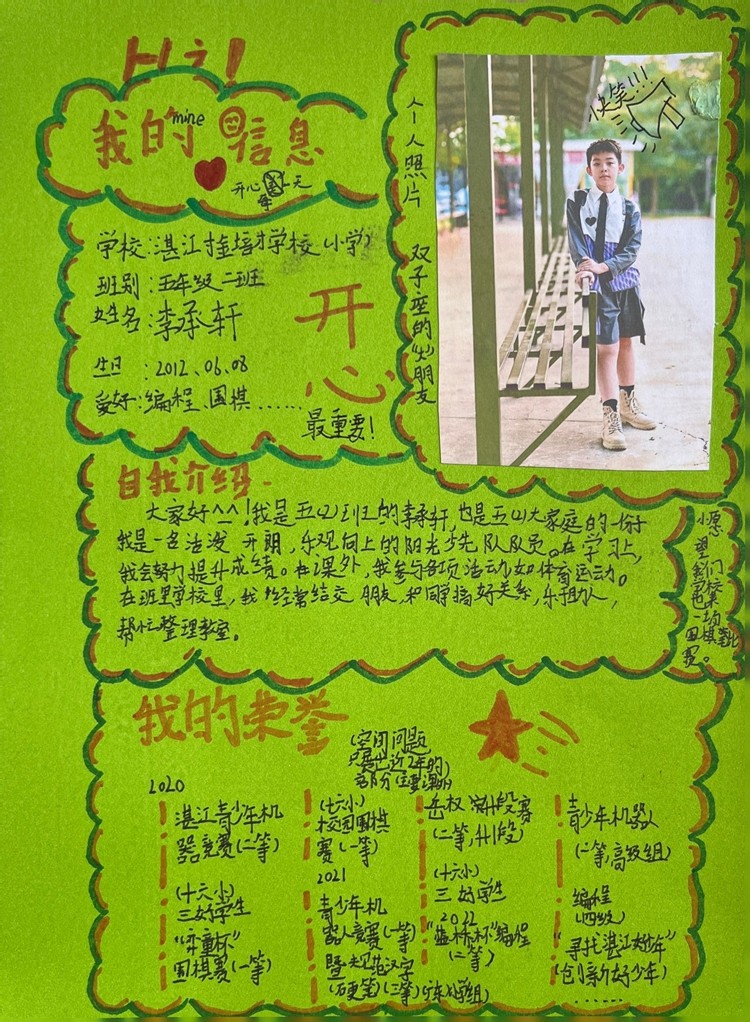 Hi!
我的mine信息
开心每一天
学校:湛江市金培才学校(小学)
班别:五年级二班
姓名:李承轩
生日:2012、06.08
爱好:编程、围棋……
开心
最重要!
个人照片 双子座的"火"朋友
快笑!!!
自我介绍
大家好^^!我是五(2)班的李承轩,也是五(2)大家庭的一份子
我是一名活泼 开朗,乐观向上的阳光少先队队员。在学习上,
我会努力提升成绩。在课外,我参与各项活动,如体育运动。
在班里学校里,我经常结交朋友,和同学搞好关系,乐于助人,
帮忙整理教室。
小愿望:我们
一场
围棋
赛。
我的荣誉
(空间问题
只展出近2年的
部分(主要课外)
2020
湛江青少年机
器竞赛(二等)
(十六小)
三好学生
"弈童杯"
围棋赛(一等)
(十六小)
校园围棋
赛(一等)
2021
青少年机
器人竞赛(一等)
暨规范汉字
(硬笔)(三等)
岳权 升段赛
(二等,升1段)
(十六小)
三好学生
2022
"蓝桥杯"编程
(二等)
青少年机器人
(二等,高级组)
编程
(四级)
"寻找湛江好少年"
(创新好少年)
……